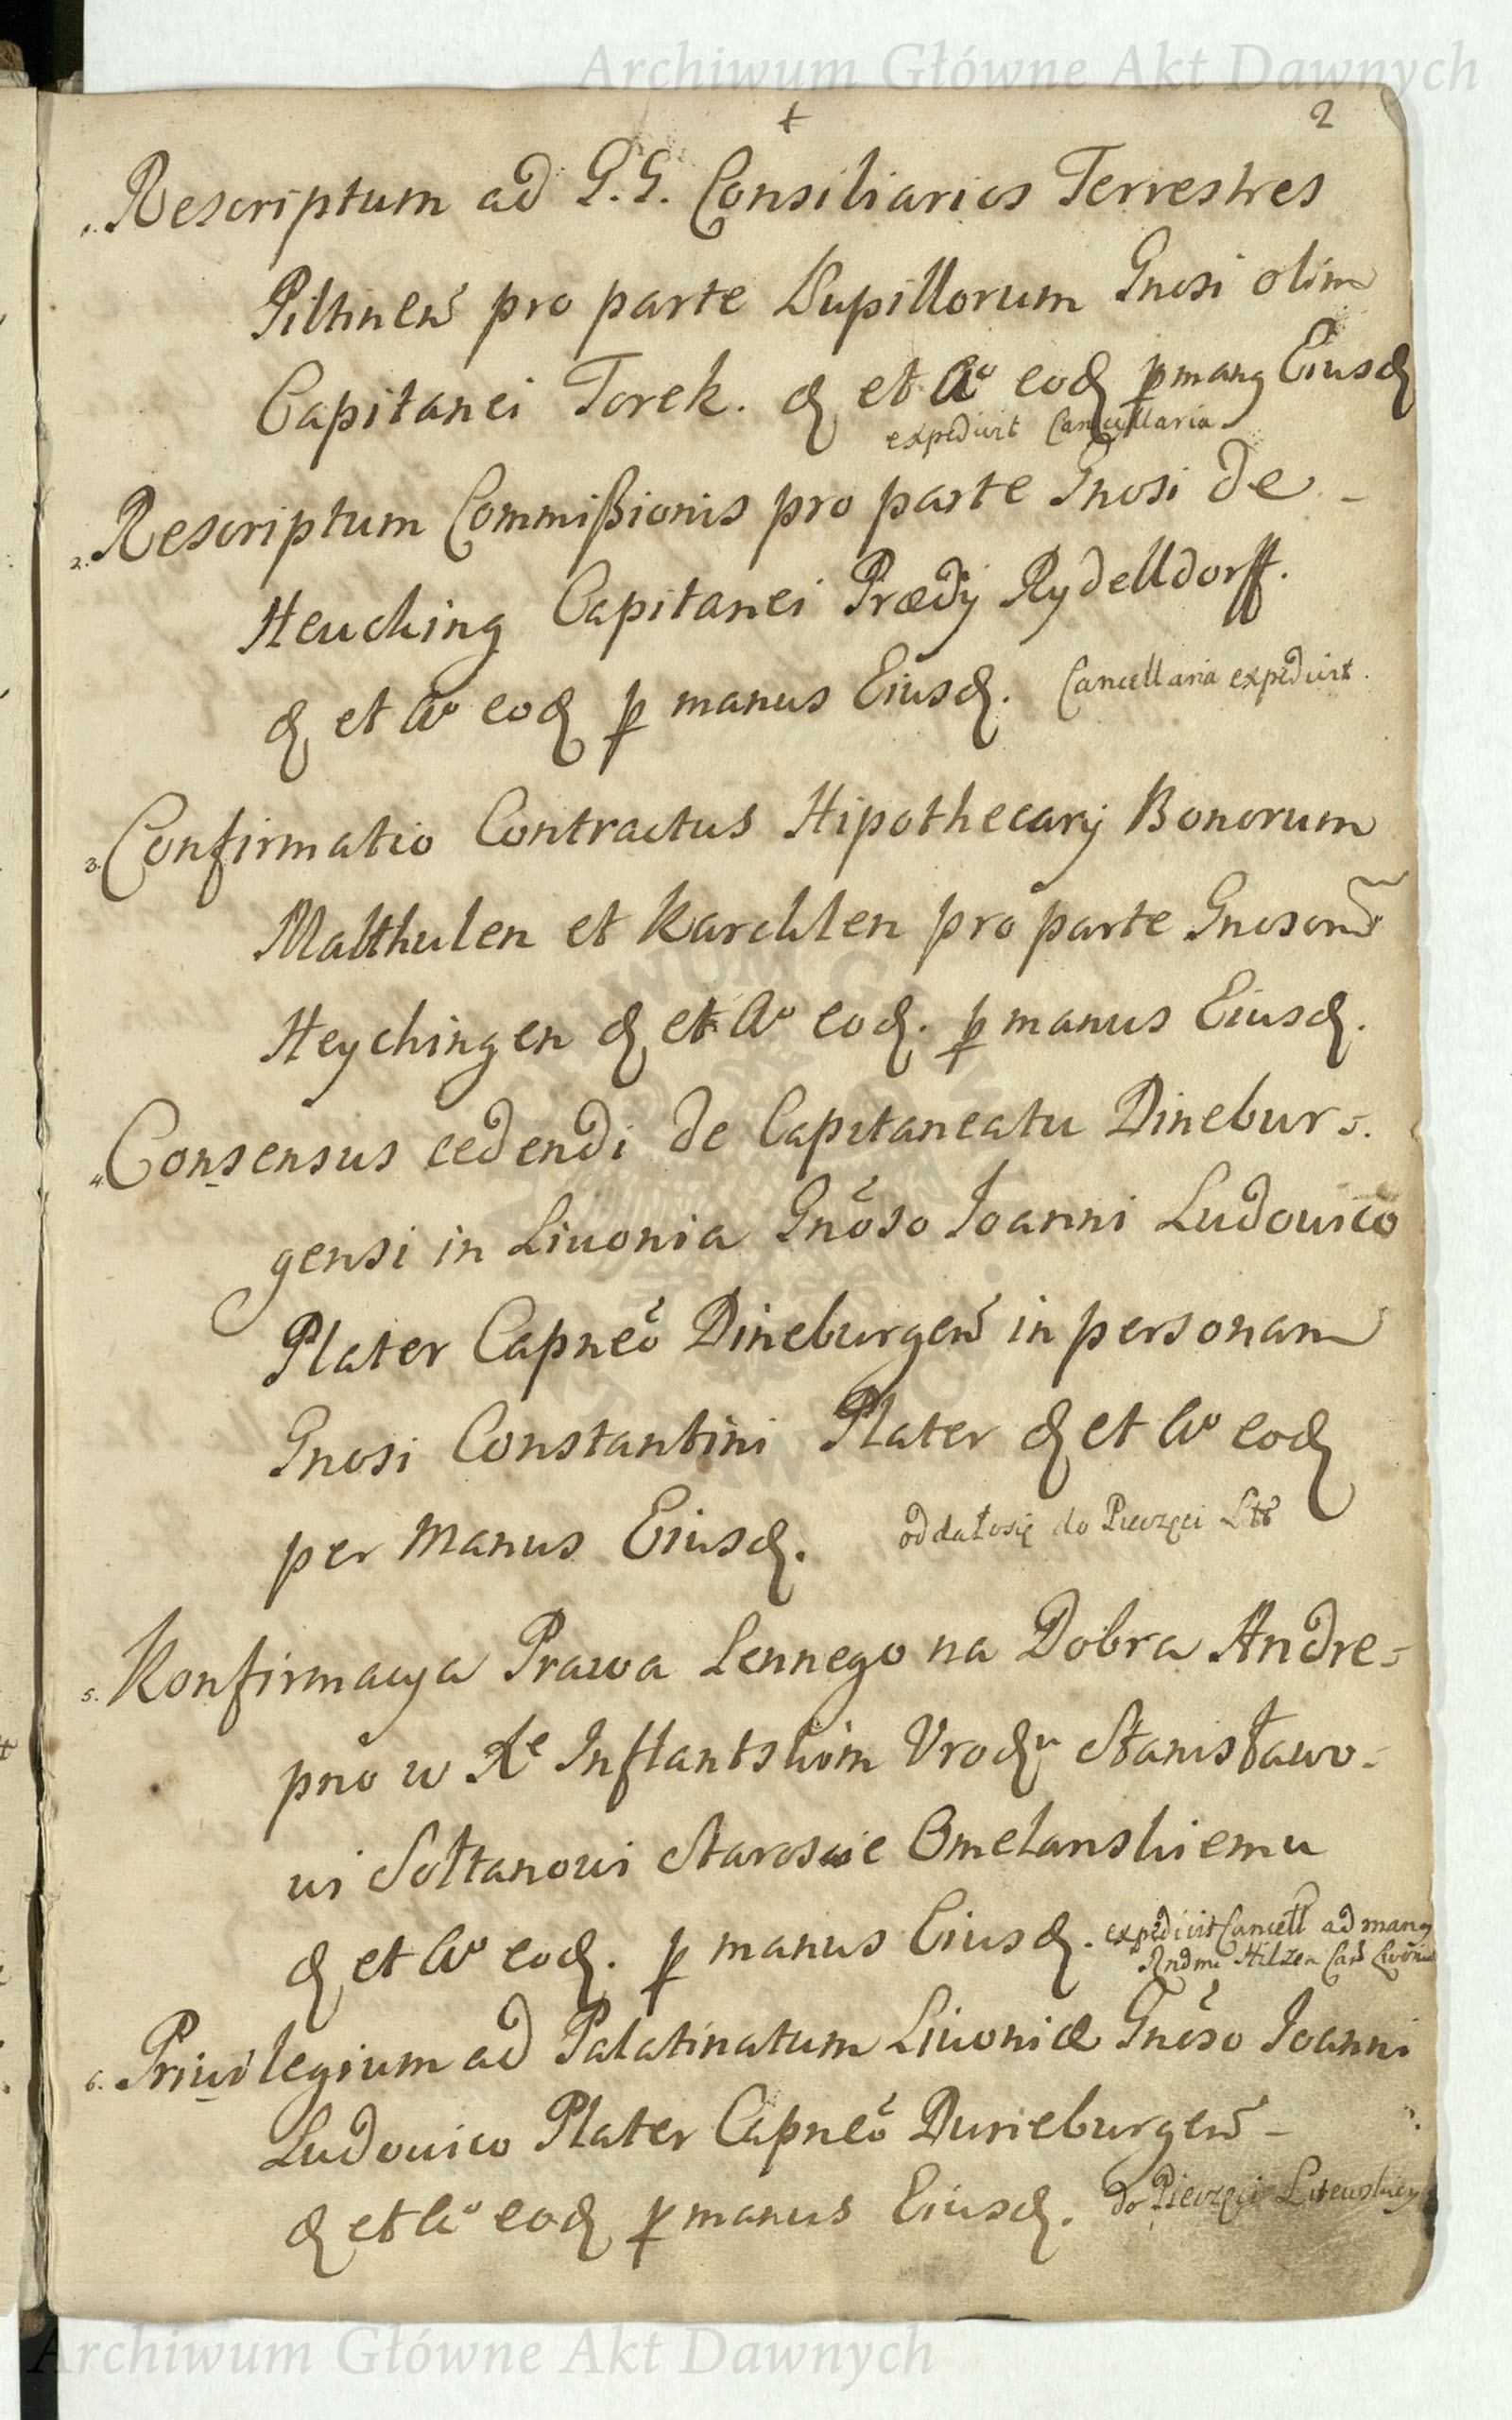 Archiwum Główne Akt Dawnych
2
1. Rescriptum ad G.G. Consiliarios Terrestres
Piltinen̄ pro parte Pupillorum Gnosi olim
Capitanei Torek. d et Aº eod p manq Eiusd
expedivit Cancellaria
2. Rescriptum Commißionis pro parte Gnosi de
Heuching Capitanei Prædij Rydelldorff.
d et Aº eod p manus Eiusd. Cancellaria expedivit.
3. Confirmatio Contractus Hipothecarij Bonorum
Malthulen et Karchlen pro parte Gnosorū
Heychingen d et Aº eod. p manus Eiusd.
4. Consensus cedendi de Capitaneatu Dinebur-
gensi in Livonia Gnōso Joanni Ludovico
Plater Capneō Dineburgen̄ in personam
Gnosi Constantini Plater d et Aº eod
per manus Eiusd. oddało się do Pieczęci Litt
5. Konfirmacya Prawa Lennego na Dobra Andre-
pnō w Xe Inflantskim Urodu Stanisławo-
wi Sołtanowi Staroscie Omelanskiemu
d et Aº eod. p manus Eiusd. expedivit Cancell ad manq
Rndmi Hilzen Cas Livonia
6. Privilegium ad Palatinatum Livoniæ Gnōso Joanni
Ludovico Plater Capneō Duneburgen̄
d et Aº eod p manus Eiusd. do Pieczęci Litewskiey
Archiwum Główne Akt Dawnych